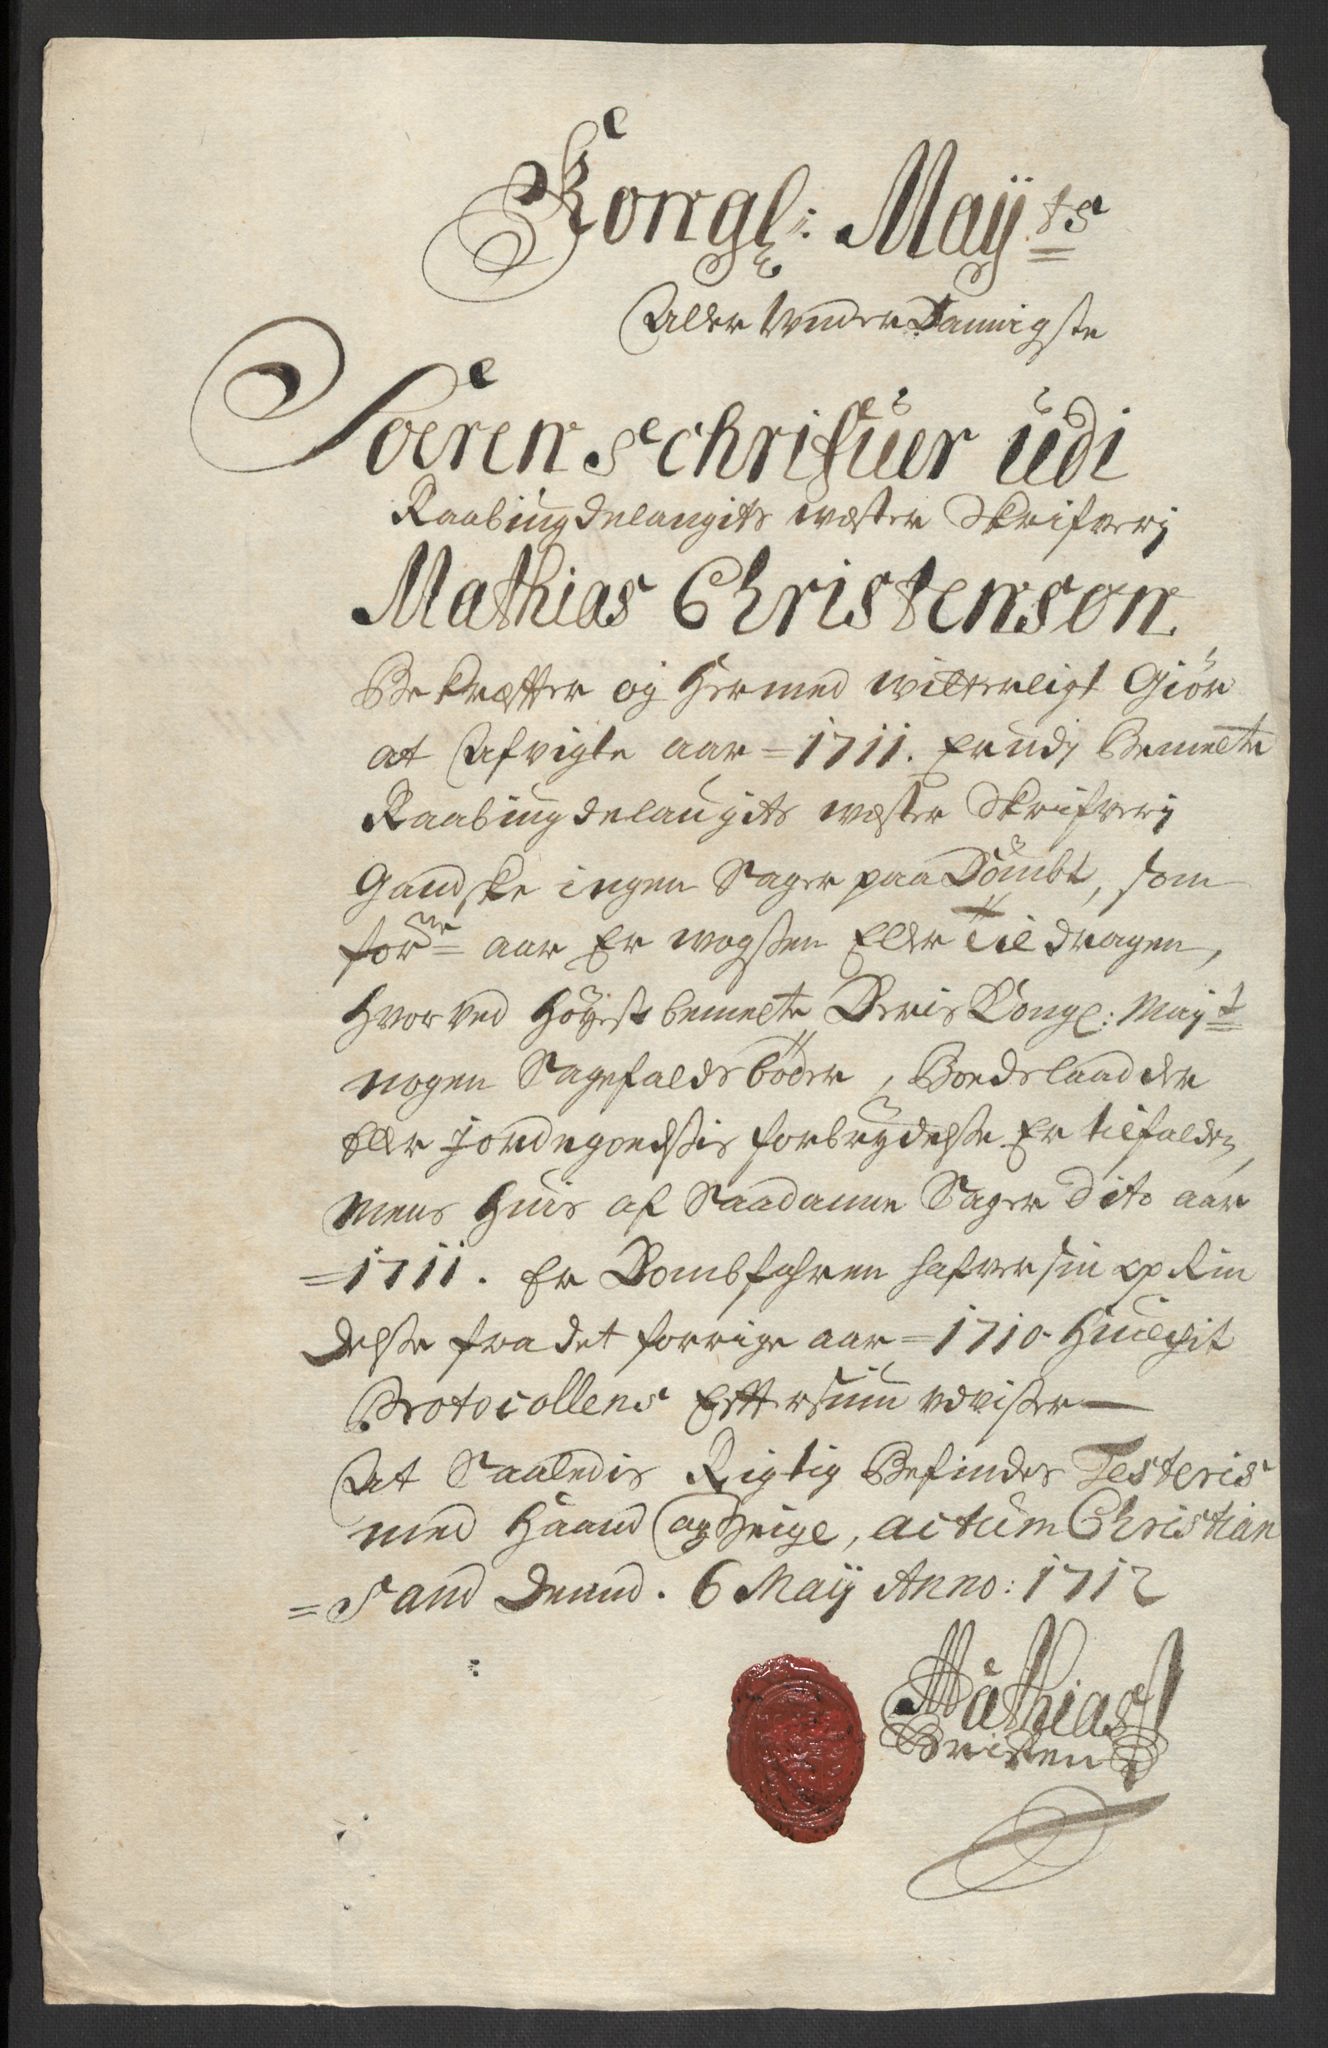 Kongl: Maÿ.ts
Aller Under Dannigste
Soeren schrifuer udi
Raabiugdelaugits wæster Skrifverj
Mathias Christenson
Bekræfter og Hermed witterligt Giör
at Afvigte aar =1711. Er udj Bemelte
Raabiugdelaugits wæster Skrifverj
Gandske ingen Sager paa Dömbt, som
forne aar Er wogsen Eller Til dragen,
Hvorved Höyestbemelte Deris Kongl: Mayt
nogen Sagefaldsböder, Boedslaadder
Eller Jordegoedssis forbrydelse Er tilfalden,
Mens Huis af Saadanne Sager Dito aar
=1711. Er Dombfahren hafver sin oprin
delse fra det forrige aar =1710. Huilchit
Protocollens Eftersiun udviser
At Saaledis Rigtig Befindes Testeris
med Haand og Seigl, actum Christian
=Sand Dennd. 6 Maÿ Anno: 1712
Mathias
Christen